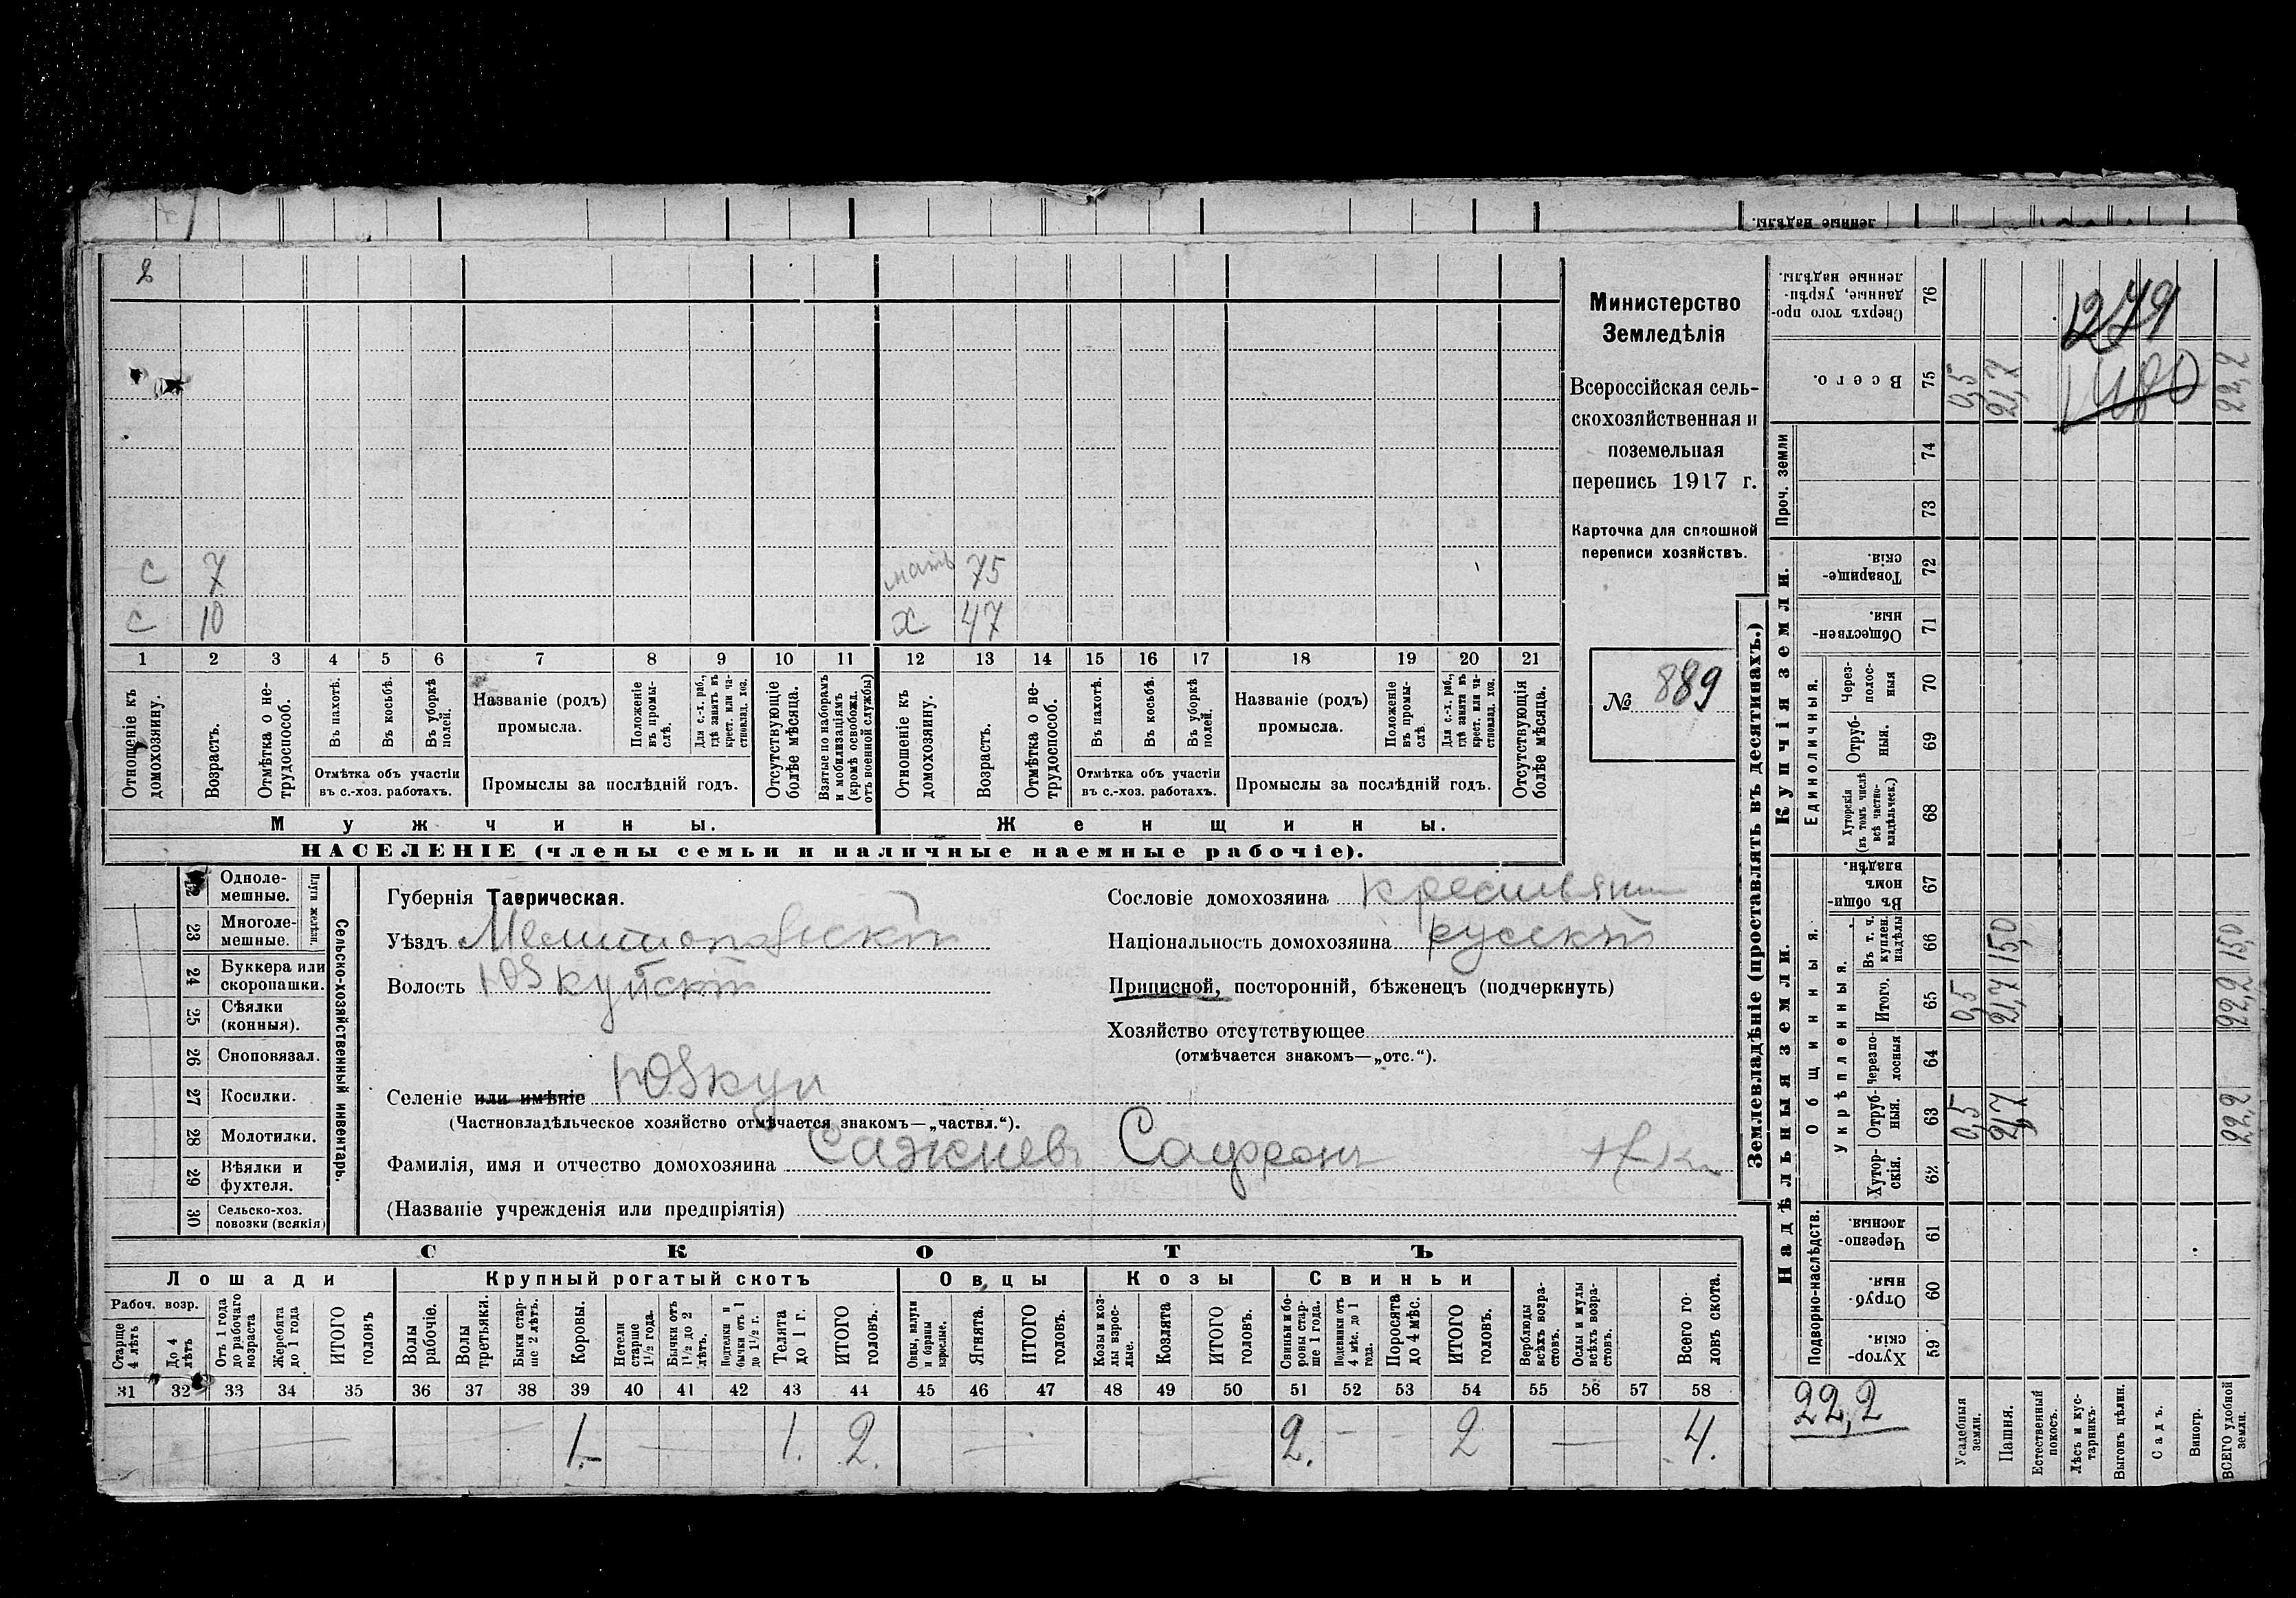 ленные надѣлы.
2
с 7 мать 75
с 10 х 47
1 2 3 4 5 6 7 8 9 10 11 12 13 14 15 16 17 18 19 20 21
Отношеніе къ домохозяину.
Возрастъ.
Отмѣтка о не-
трудоспособ.
Въ пахотѣ.
Въ косьбѣ.
Въ уборкѣ
полей.
Отмѣтка объ участіи
въ с.-хоз. работахъ.
Названіе (родъ)
промысла.
Положеніе
въ промы-
слѣ.
Для с.-х. раб.,
гдѣ занятъ въ
крест. или ча-
стновлад. хоз.
Промыслы за послѣдній годъ.
Отсутствующіе
болѣе мѣсяца.
Взятые по наборамъ
и мобилизаціямъ
(кромѣ освобожд.
отъ военной службы)
Отношеніе къ
домохозяину.
Возрастъ.
Отмѣтка о не-
трудоспособ.
Въ пахотѣ.
Въ косьбѣ.
Въ уборкѣ
полей.
Отмѣтка объ участіи
въ с.-хоз. работахъ.
Названіе (родъ)
промысла.
Положеніе
въ промы-
слѣ
Для с.-х. раб.,
гдѣ занята въ
крест. или ча-
стновлад. хоз.
Промыслы за послѣдній годъ.
Отсутствующія
болѣе мѣсяца.
Мужчины.
Женщины.
НАСЕЛЕНІЕ (члены семьи и наличные наемные рабочіе).
Министерство
Земледѣлія
Всероссійская сель-
скохозяйственная и
поземельная
перепись 1917 г.
Карточка для сплошной
переписи хозяйствъ.
№ 889
Однолемешные.
23 Многоле-
мешные.
Плуги желѣзн.
24 Буккера или
скоропашки.
25 Сѣялки
(конныя).
26 Сноповязал.
27 Косилки.
28 Молотилки.
29 Вѣялки и
фухтеля.
30 Сельско-хоз.
повозки (всякія)
Сельско-хозяйственный инвентарь.
Губернія Таврическая.
Уѣздъ Мелитопольскій
Волость Юзкуйскій
Селеніе или имѣніе Юзкуи
(Частновладѣльческое хозяйство отмѣчается знакомъ—„частвл.“).
Фамилія, имя и отчество домохозяина Сажневъ Софронъ
(Названіе учрежденія или предпріятія)
Сословіе домохозяина крестьянин
Національность домохозяина русскій
Приписной, посторонній, бѣженецъ (подчеркнуть)
Хозяйство отсутствующее
(отмѣчается знакомъ—„отс.“).
СКОТЪ
Лошади
Крупный рогатый скотъ
Овцы
Козы
Свиньи
Рабоч. возр.
Старше
4 лѣтъ
До 4
лѣтъ
Отъ 1 года
до рабочаго
возраста
Жеребята
до 1 года
ИТОГО
головъ
Волы
рабочіе.
Волы
третьяки.
Быки стар-
ше 2 лѣтъ.
Коровы.
Нетели
старше
1½ года.
Бычки отъ
1½ до 2
лѣтъ.
Подтелки и
бычки отъ 1
до 1½ г.
Телята
до 1 г.
ИТОГО
головъ.
Овцы, валухи
и бараны
взрослые.
Ягнята.
ИТОГО
головъ.
Козы и коз-
лы взрос-
лые.
Козлята
ИТОГО
головъ.
Свиньи и бо-
ровы стар-
ше 1 года.
Подсвинки отъ
4 мѣс. до 1
года.
Поросята
до 4 мѣс.
ИТОГО
головъ.
Верблюды
всѣхъ возра-
стовъ.
Ослы и мулы
всѣхъ возра-
стовъ.
Всего го-
ловъ скота.
31 32 33 34 35 36 37 38 39 40 41 42 43 44 45 46 47 48 49 50 51 52 53 54 55 56 57 58
— — 1.- — 1. 2. — 2. - - 2 — 4.
Землевладѣніе (проставлять въ десятинахъ.)
Надѣльныя земли.
Купчія земли.
Проч. земли
Подворно-наслѣдств.
Общинныя.
Укрѣпленныя.
Единоличныя.
Сверхъ того про-
данные, укрѣп-
ленные надѣлы.
76
Всего.
75 0,5 21,7 22,2
74
73
Товарище-
скія.
72
Обществен-
ныя.
71
Через-
полос-
ныя
70
Отруб-
ныя.
69
Хуторскія
(въ томъ числѣ
всѣ частно-
владѣльческ.)
68
Въ общи-
номъ
владѣн.
67
Въ т. ч.
куплен.
надѣлы
66 15,0 15,0
Итого.
65 0,5 21,7 22,2
Черезпо-
лосныя
64
Отруб-
ныя.
63 0,5 21,7 22,2
Хутор-
скія.
62
Черезпо-
лосныя.
61
Отруб-
ныя.
60
Хутор-
скія.
59
1279
1480
22,2
Усадебныя
земли.
Пашня.
Естественный
покосъ.
Лѣсъ и кус-
тарникъ.
Выгонъ цѣлин.
Садъ.
Виногр.
ВСЕГО удобной
земли.